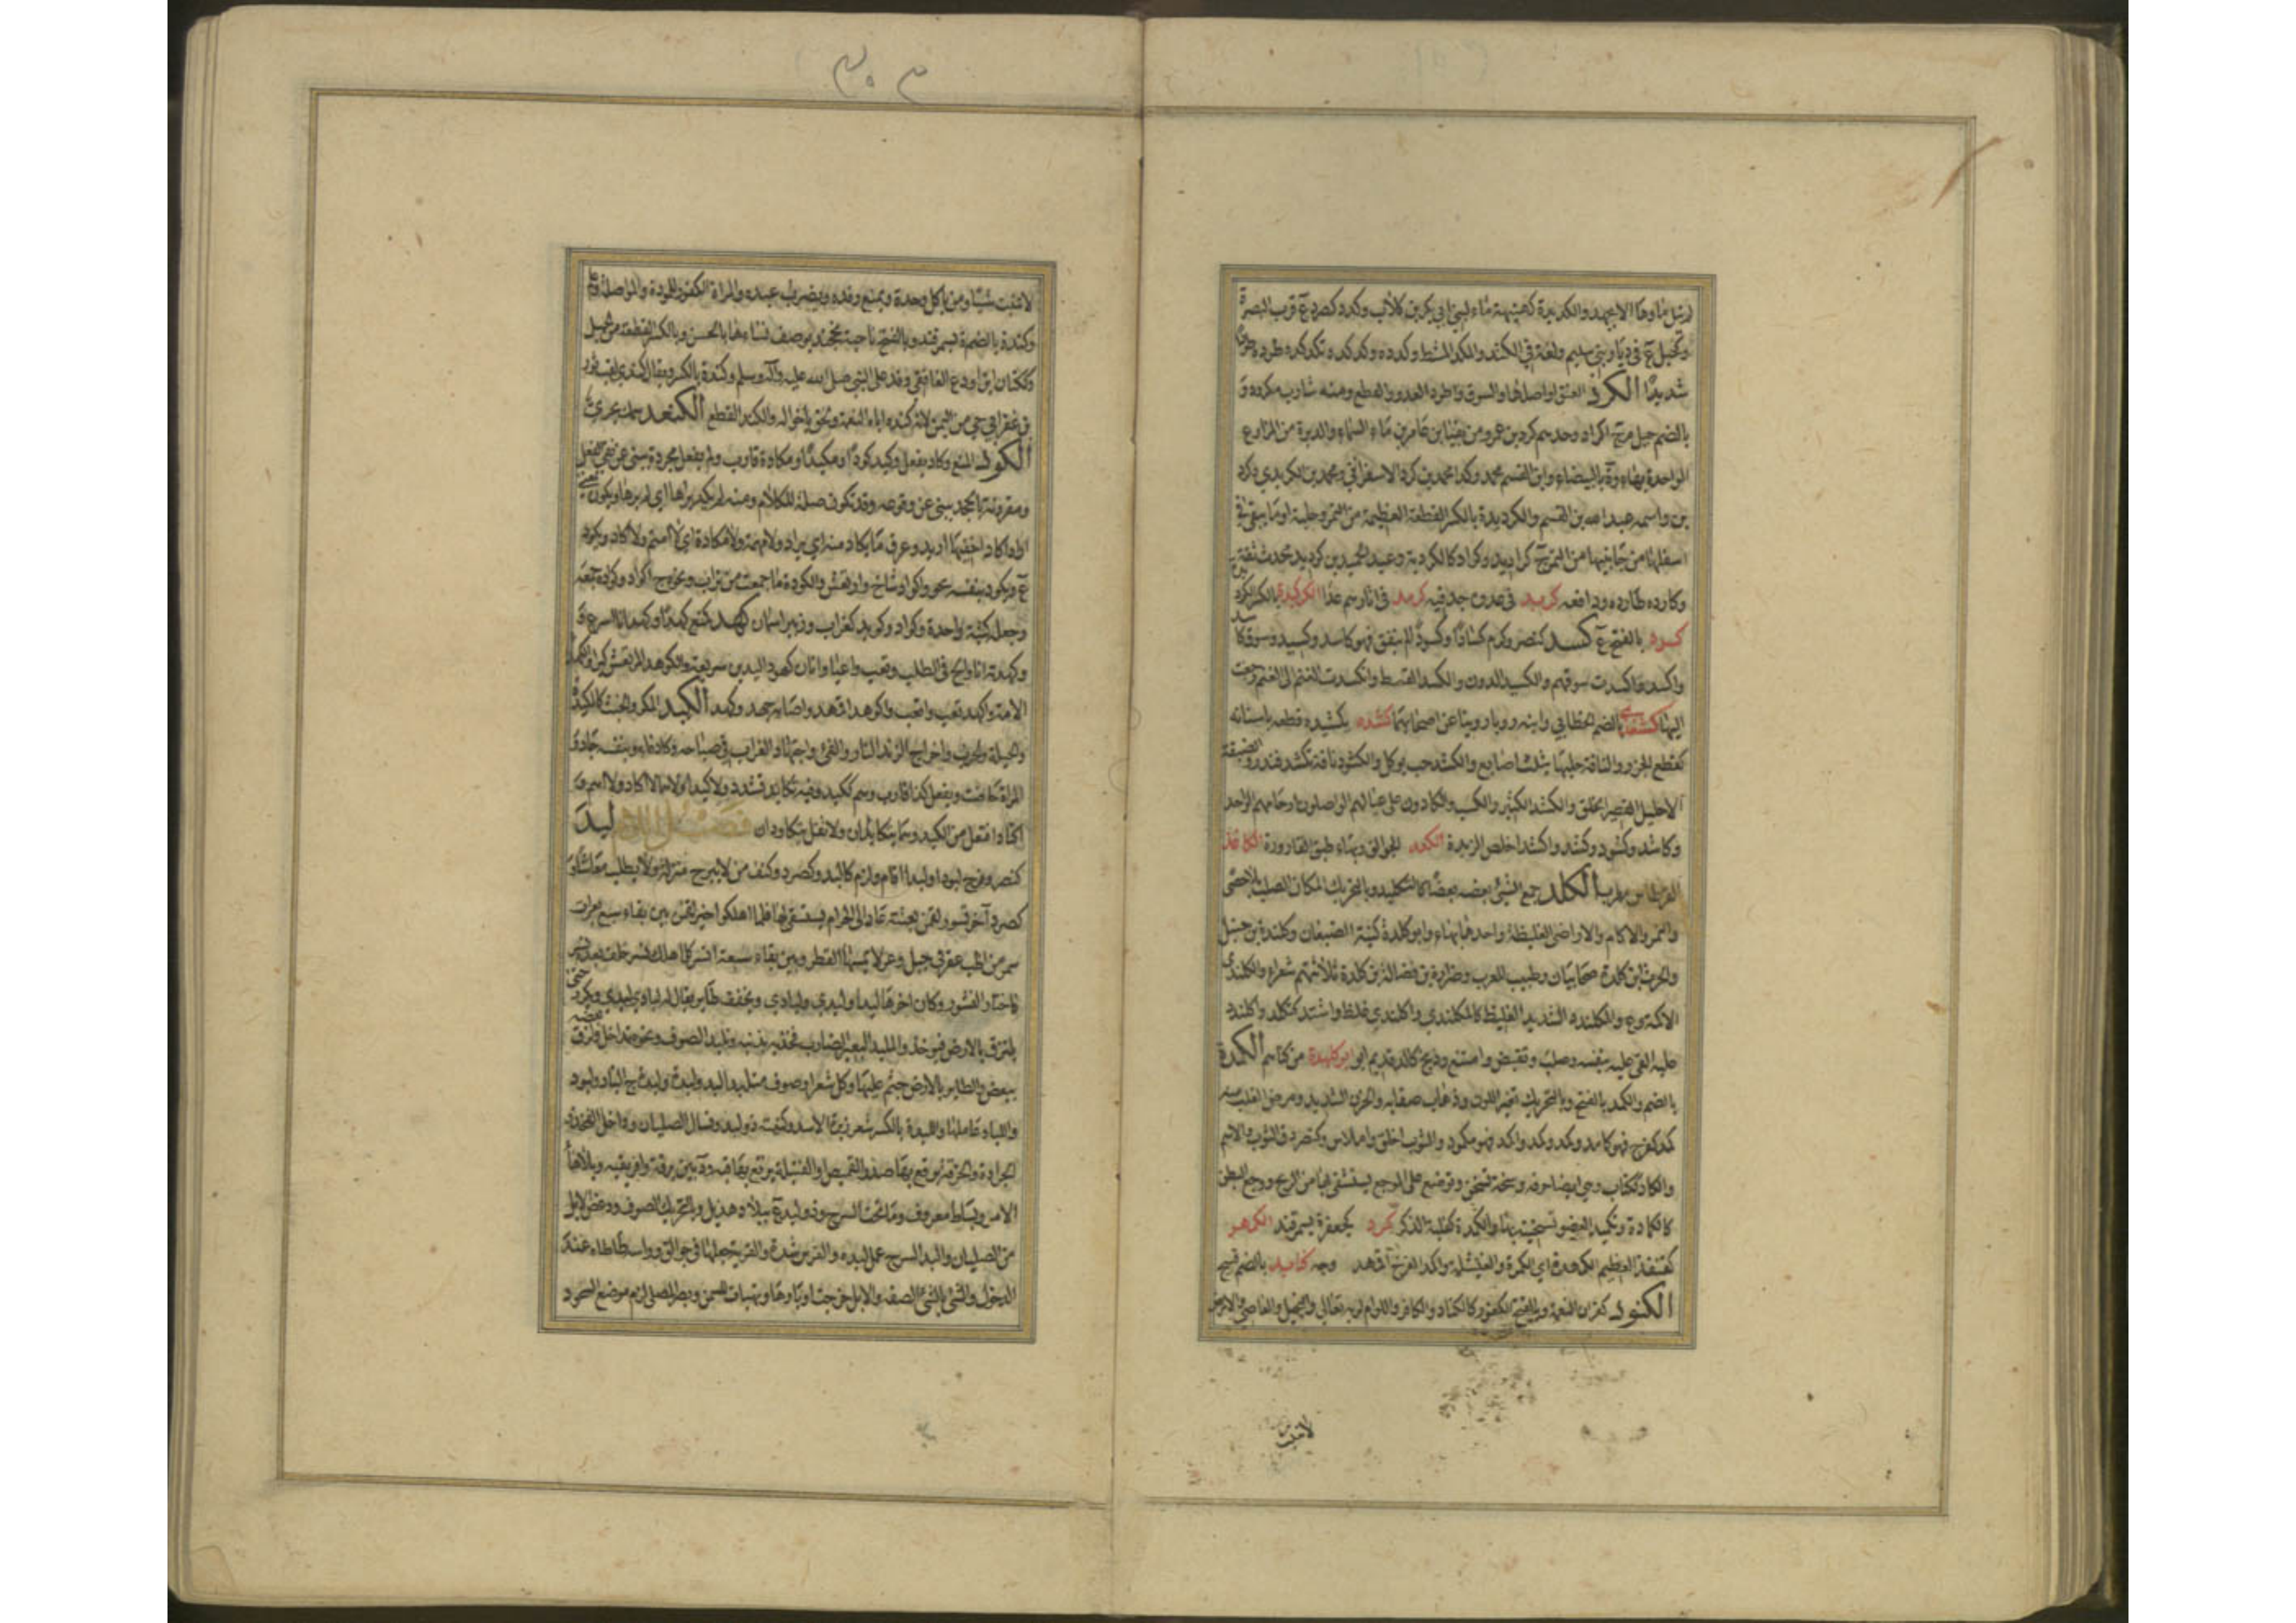 وبئر ماؤها الا بجهد والكديدة كجهينة ماء لبني ابي بكر بن كلاب وكدد كصرد ع قرب البصرة
وكجبل ع في ديار بني سليم ولغة في الكتد والمكد المشط وكدده وكدكده وتكدكده طرده طردا
شديدا الكرد العنق او اصلها والسوق وطرد العدو والقطع ومنه شارب مكرود و
بالضم جيل م ج اكراد وجدهم كرد بن عمرو مزيقيا بن عامر بن ماء السماء والدبرة من المزارع
الواحدة بهاء وة بالبيضاء وابن القسم محمد وكذا محمد بن كرد الاسفرايني ومحمد بن الكريدي وكرد
بن واسمه عبد الله بن القسم والكرديدة بالكسر القطعة العظيمة من التمر وجلته او ما يبقى في
اسفلها من جانبيها من التمر ج كراديد وكرادكالكردية وعبد الحميد بن كرديد محدث ثقة
وكارده طارده ودافعه كربد في عدوه جد فيه كرمد في اثارهم عدا الكركيدة بالكسر الكرد
كرد بالفتح ع كسد كنصر وكرم كسادا وكسودا لم ينفق فهو كاسد وكسيد وسوق كاسد
واكسد واكسدت سوقهم والكسيد الدون والكسد القسط وانكسدت الغنم الى الغنم رجعت
اليها كشغد بالضم الخطابي وابنه رويا روينا عن اصحابهما كشده يكشده قطعه باسنانه
كقطع الجزر والناقة حلبها بثلث اصابع والكشد حب يوكل والكشود ناقة تكشد فتدر والضيقة
الاحليل القصيرة الخلف والكشد الكثير والكسب والكادون على عيالهم الواصلون ارحامهم الواحد
وكاشد وكشود وكشد واكشد اخلص الزبدة الكعد الجوالق وبهاء طبق القارورة الكاغد
القرطاس معرب الكلد جمع الشيء بعضه بعضا كالتكليد وبالتحريك المكان الصلب بلا حصى
والنمر والاكام والاراضي الغليظة واحدها بهاء وابو كلدة كنية الضبعان وكلدة بن حنبل
والحرث بن كلدة صحابيان وطبيب للعرب وضرار بن فضالة بن كلدة ثلاثتهم شعراء والكلندى
الاكمة وع والمكلندد الشديد الغليظ كالمكلندي واكلندى غلظ واشتد كتكلد واكلند
عليه القى عليه بنفسه وصلب وتقبض وامتنع وذيخ كالد قديم ابو ابو كلهدة من كناهم الكمدة
بالضم والكمد بالفتح وبالتحريك تغير اللون وذهاب صفايه والحزن الشديد ومرض القلب منه
كمد كفرح فهو كامد وكمد وكميد واكمد فهو مكمود والثوب اخلق واملاس وكنصر دق الثوب والاسم
والكماد ككتاب وهي ايضا خرقة وسخة تسخن وتوضع على الموجع يستشفى بها من الريح ووجع البطن
كالكمادة وتكميد العضو تسخينه بها والكمدة كعتلة الذكر كمرد كجعفر ة بسمرقند الكمهد
كقنفذ العظيم الكمهدة اي الكمرة والفيشلة واكمهد الفرخ اقمهد وجه كنابيد بالضم قبيح
الكنود كفران النعمة وبالفتح الكفور كالكناد والكافر واللوام لربه تعالى والبخيل والعاصي والارض
لا تنبت
٣٠٣
لا تنبت شيئا ومن ياكل وحده ويمنع رفده ويضرب عبده والمراة الكفور للمودة والمواصلة وع
وكندة بالضم ة بسمرقند وبالفتح ناحية بخجند يوصف نساءها بالحسن وبالكسر القطعة من الجبل
وككتان ابن اودع الغافقي وفد على النبي صلى الله عليه وآله وسلم وكندة بالكسر ويقال كندي لقب ثور
بن عفير ابو حي من اليمن لانه كند اباه النعمة ولحق باخواله والكند القطع الكنعد سمك بحري
الكود المنع وكاد يفعل وكيد كودا ومكيدا ومكادة قارب ولم يفعل مجردة ينبئ عن نفي الفعل
ومقرونة بالجحد ينبئ عن وقوعه وقد تكون صلة للكلام ومنه لم يكد يراها اي لم يرها ويكون بمعنى
اراد اكاد اخفيها اريد وعرف ما يكاد منه اي يراد ولا مهمة ولا مكادة اي لا اهتم ولا اكاد ويكود
ع ويكود بنفسه يجود واكواد شاخ وارتعش والكودة ما جمعت من تراب ونحوه ج اكواد وكوده جمعه
وجعله كثبة واحدة وكواد وكويد كغراب وزبير اسمان كهد كمنع كهدا وكهدانا اسرع و
وكهدته انا والح في الطلب وتعب واعيا واتان كهود اليدين سريعة والكوهد المرتعش كبرا والكهداء
الامة واكهد تعب واتعب واكوهد اقهد واصابه جهد وكهد الكيد المكر والخبث كالمكيدة
والحيلة والحرب واخراج الزند النار والقئ واجتهاد الغراب في صياحه وكاد قاء وبنفسه جاد و
المراة حاضت ويفعل كذا قارب وهم ككيد وفيه تكايد تشدد ولا كيدا ولا هما لا اكاد ولا اهم و
اكتاد افتعل من الكيد وهما يتكايدان ولا تقل يتكاودان فصل اللام لبد
كنصر وفرح لبودا ولبدا اقام ولزم كالبد وكصرد وكتف من لا يبرح منزله ولا يطلب معاشا و
كصرد آخر نسور لقمن بعثته عاد الى الحرم يستسقي لها فلما اهلكوا خير لقمن بين بقاء سبع بعرات
سمر من اظب عفر في جبل وعر لا يمسها القطر وبين بقاء سبعة انسر كلما هلك نسر خلف بعده نسر
فاختار النسور وكان اخرها لبدا ولبدى ولبادى ويخفف طاير يقال له لبادى لبدي ويكرر حتى
يلتزق بالارض فيوخذ والملبد البعير الضارب فخذيه بذنبه وتلبد الصوف ونحوه تداخل ولزق بعضه
ببعض والطاير بالارض جثم عليها وكل شعر او صوف متلبد لبد ولبدة ولبدة ج الباد ولبود
واللباد عاملها واللبدة بالكسر شعر زبرة الاسد وكنيته ذو لبد ونسال الصليان وداخل الفخذ و
الجرادة والخرقة يرقع بها صدر القميص او القبيلة يرقع بها قبه ود بين برقة وافريقية وبلا هاء
الامر وبساط معروف وما تحت السرج وذو لبد ع ببلاد هذيل وبالتحريك الصوف ودغص الابل
من الصليان والبد السرج عمل لبده والفرس شده والقربة جعلها في جوالق وراسه طاطاه عند
الدخول والشئ بالشئ الصقه والابل خرجت اوبارها وتهيات للسمن وبصر المصلي لزم موضع السجود